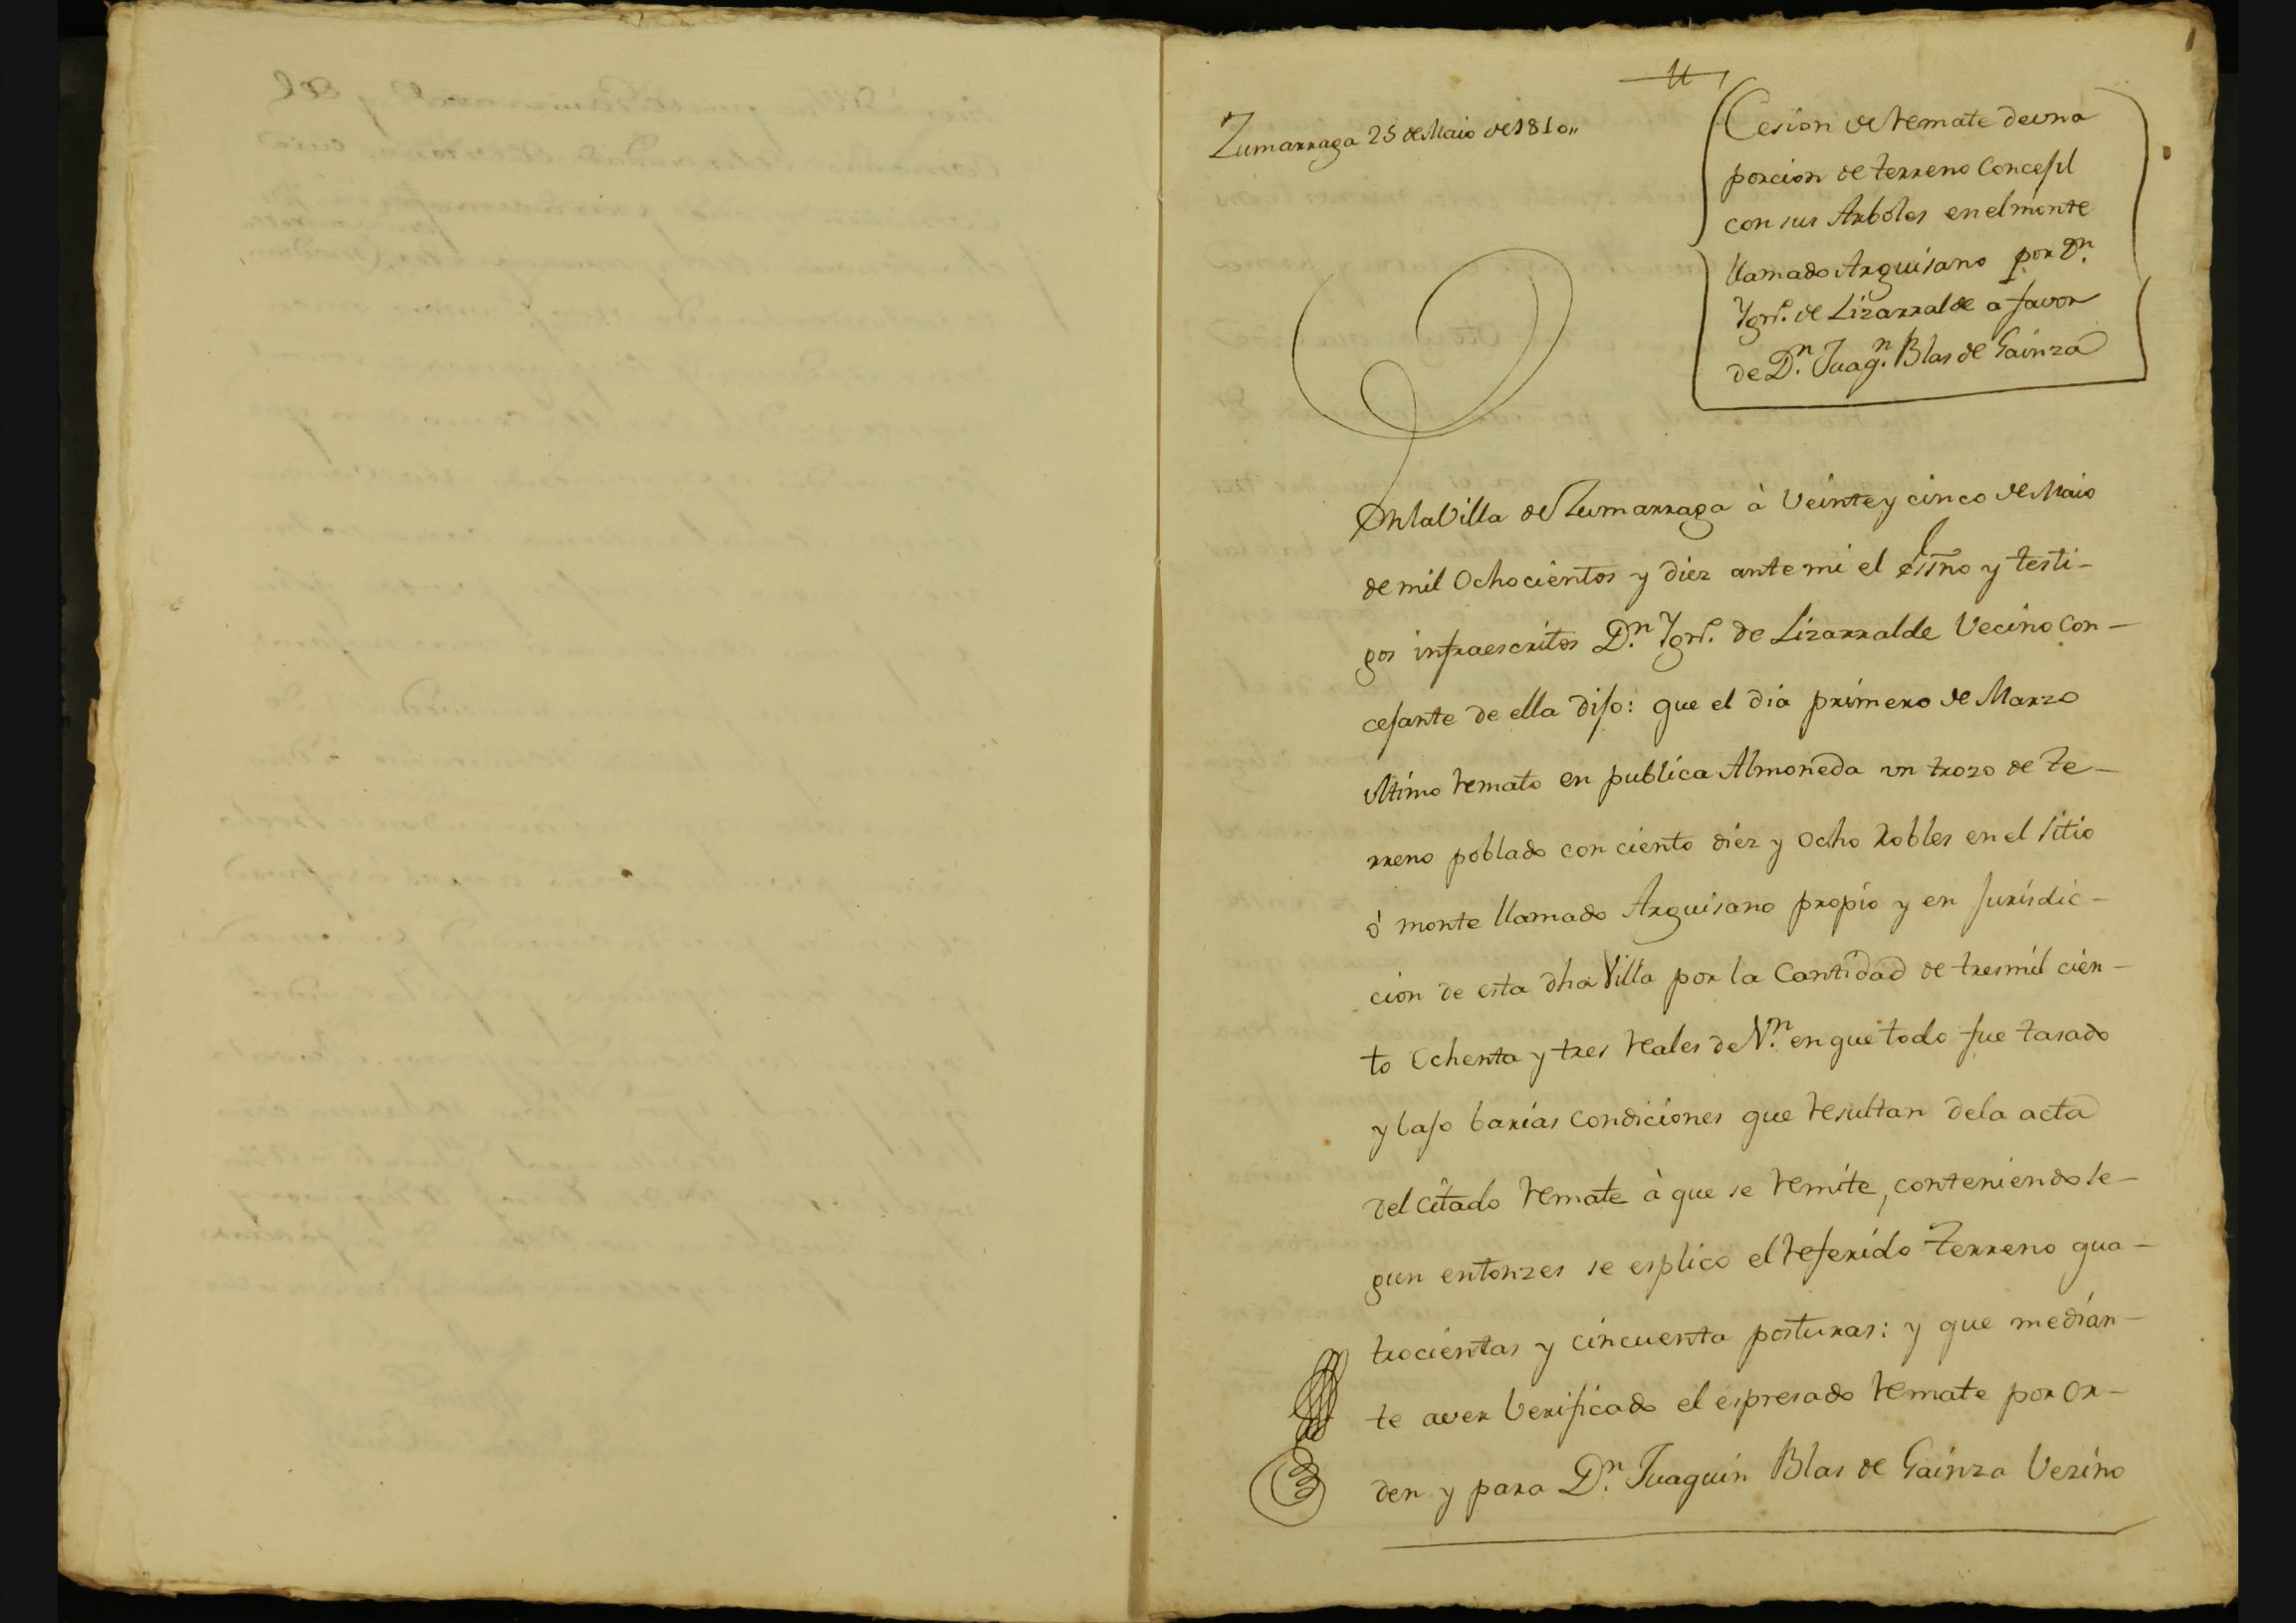 Zumarraga 25 de Maio de 1810,,
Cesion de remate de una
porcion de terreno Concejil
con sus Arboles en el monte
llamado Arguisano por Dn.
Ygno. de Lizarralde a favor
de Dn. Juaqn. Blas de Gainza
En la Villa de Zumarraga à Veinte y cinco de Maio
de mil Ochocientos y diez ante mi el essno y testi-
gos infraescritos Dn. Ygno. de Lizarralde Vecino con-
cejante de ella dijo: que el dia primero de Marzo
ultimo remato en publica Almoneda un trozo de te-
rreno poblado con ciento diez y ocho Robles en el sitio
ò monte llamado Arguisano propio y en jurisdic-
cion de esta dha Villa por la Cantidad de tres mil cien-
to ochenta y tres reales de Vn. en que todo fue tasado
y bajo barias condiciones que resultan de la acta
del citado remate à que se remite, conteniendo se-
gun entonzes se esplico el referido terreno qua-
trocientas y cincuenta posturas: y que median-
te aver berificado el espresado remate por or-
den y para Dn. Juaquin Blas de Gainza Vezino